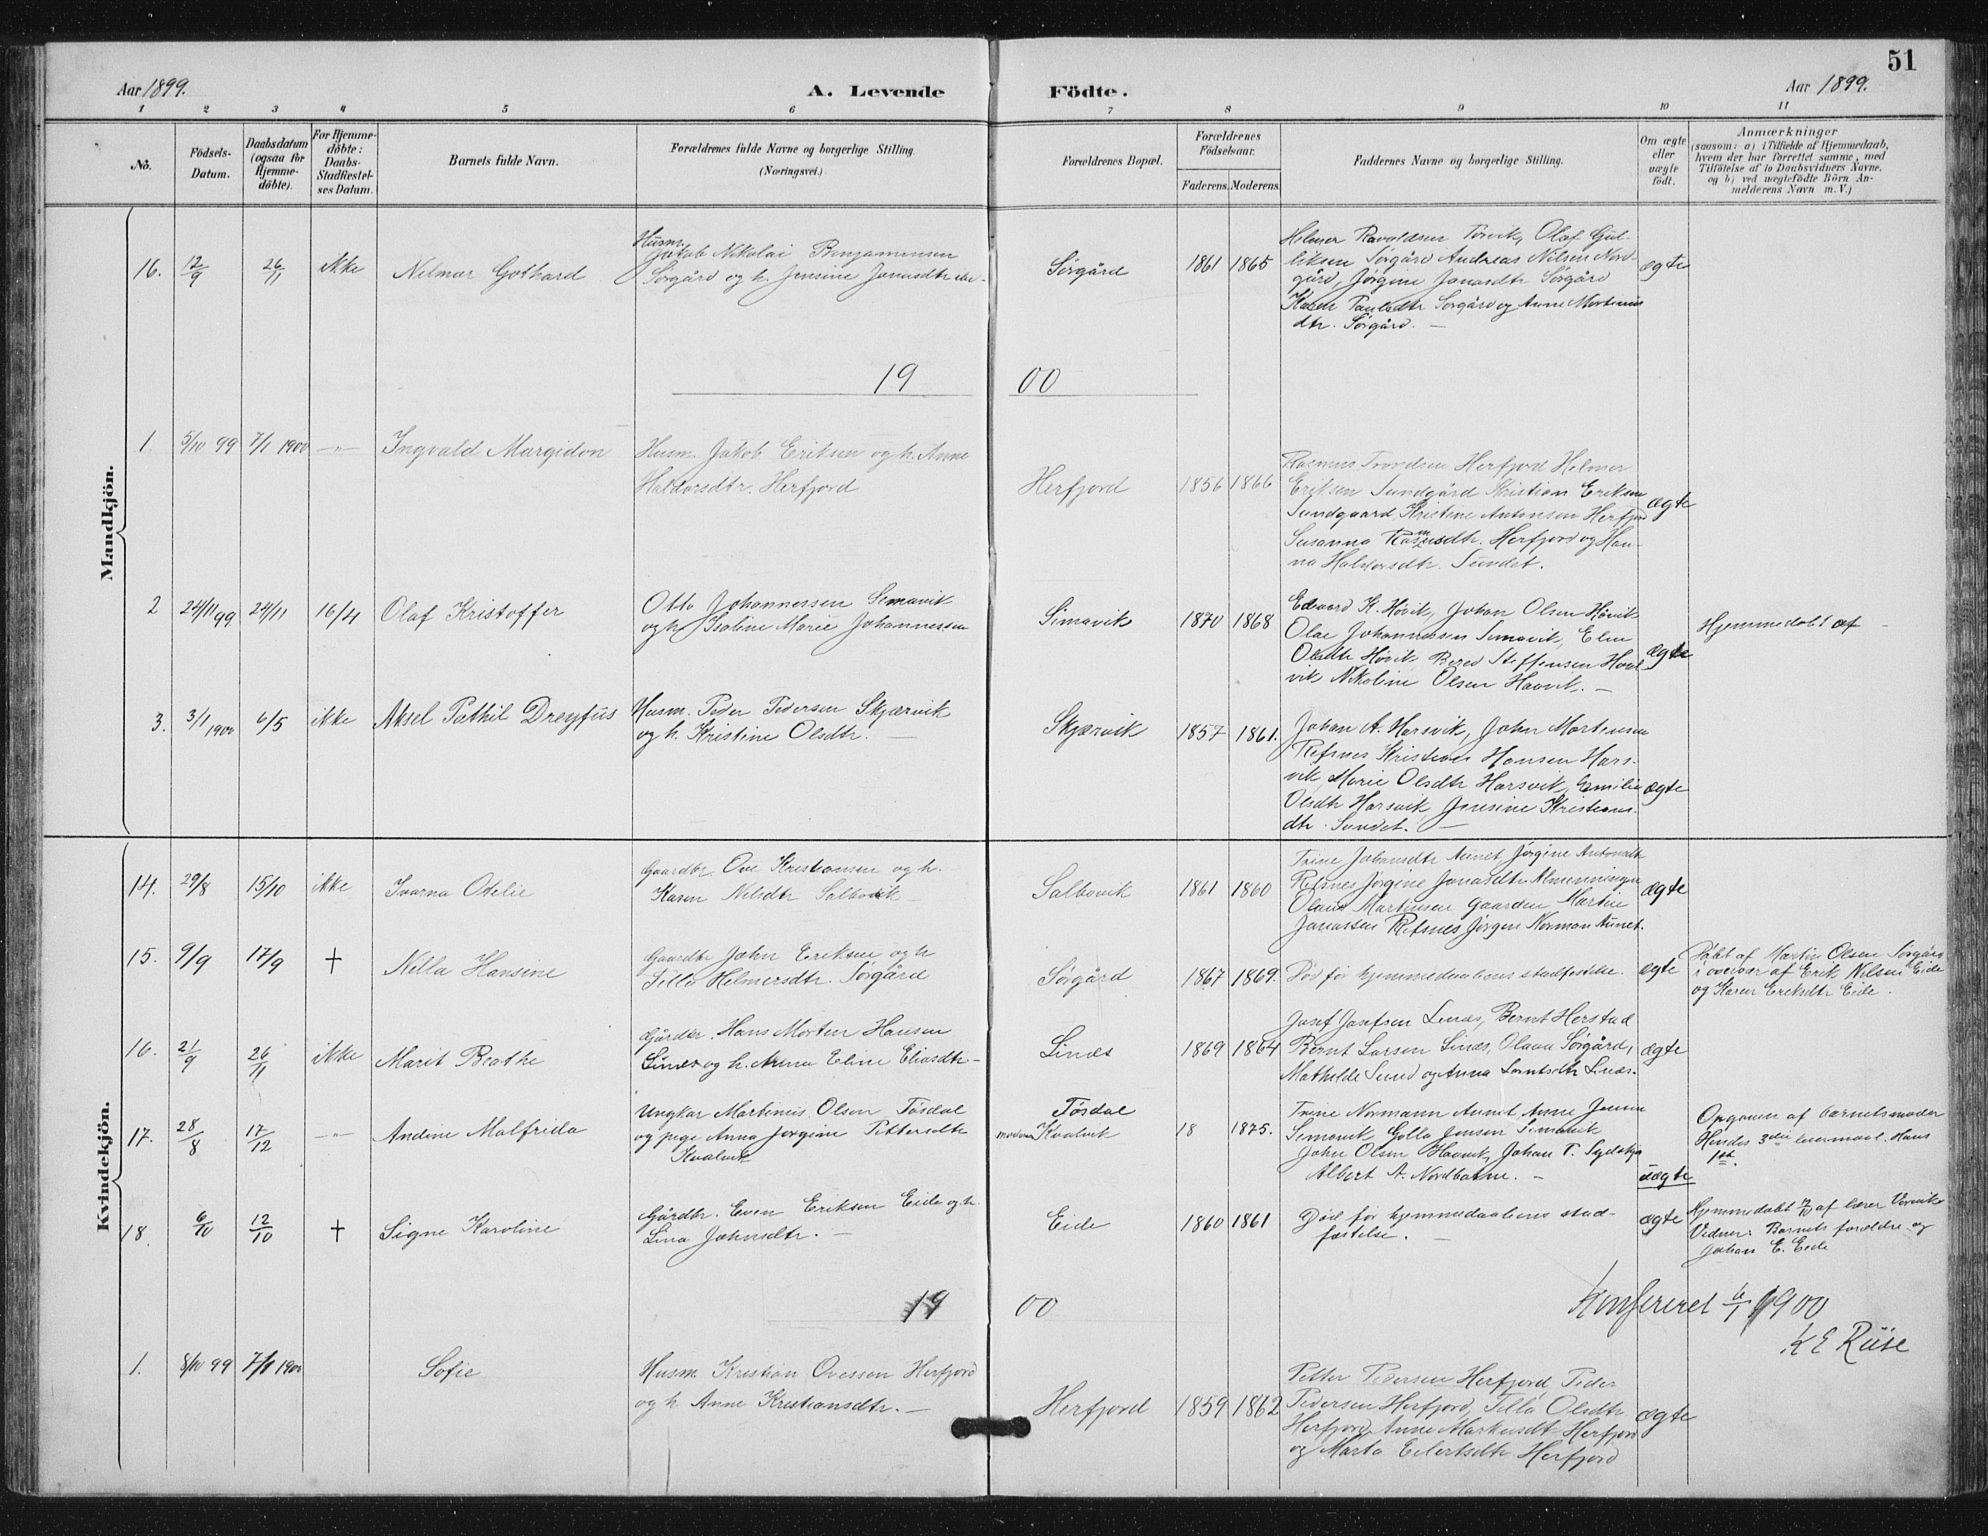 51
Aar 1899.
A. Levende
Födte.
Aar 1899.
1 2 3 4 5 6 7 8 9 10 11
No.
Födsels-
Datum.
Daabsdatum
(ogsaa for
Hjemme-
döbte).
For Hjemme-
döbte:
Daabs-
Stadfæstel-
ses Datum.
Barnets fulde Navn.
Forældrenes fulde Navne og borgerlige Stilling.
(Næringsvei.)
Forældrenes Bopæl.
Forældrenes
Födselsaar.
Faderens. Moderens.
Faddernes Navne og borgerlige Stilling.
Om ægte
eller
uægte
födt.
Anmærkninger
(saasom: a) i Tilfælde af Hjemmedaab,
hvem der har forrettet samme, med
Tilföielse af to Daabsvidners Navne,
og b) ved uægtefödte Börn An-
melderens Navn m. V.)
Mandkjön.
16. 12/9 26/11 ikke Nelmar Gothard
Husm.
Jakob Nikolai Benjaminsen
Sørgård og h. Jensine Jonasdtr
Sørgård 1861 1865
Helmer Olaf Gul-
liksen Sørgård Andreas Nilsen Nord-
gård, Jørgine Jonasdtr Sørgård
Karen Paulsdtr Sørgård og Anne Martinus
dtr. Sørgård. —
ægte
19 00
1. 5/10 99 7/1 1900 —"— Ingvald Margidon
Husm. Jakob Eriksen og h. Anne
Haldorsdtr. Herfjord
Herfjord 1856 1866
Rasmus Trondsen Herfjord Helmer
Eriksen Sundgård Kristian Eriksen
Sundgaard, Kristine Antonsen Herfjord
Susanna Rasmusdtr. Herfjord og Han-
na Haldorsdtr. Sundet.
ægte
2 24/11 99 24/11 16/4 Olaf Kristoffer
Otto Johannessen Simavik
og h. Isaline Marie Johannessen
Simavik 1870 1868
Edvard K. Høvik, Johan Olsen Høvik
Olae Johannessen Simavik, Elen
Olsdtr Høvik Steffensen
vik Nikoline Olsen Havvik. —
ægte
Hjemmedøbt af —
3. 3/1 1900 6/5 ikke Aksel Pathil Dreyfus
Husm. Peder Pedersen Skjærvik
og h. Kristine Olsdtr. —
Skjærvik 1857 1861.
Johan A. Harsvik, John Martinsen
Refsnes Kristine Hansen Hars-
vik, Marie Olsdtr Harsvik, Emilie
Olsdtr Harsvik, Jensine Kristians-
dtr. Sundet. —
ægte
Kvindekjön.
14. 29/8 15/10 ikke Ivarna Odelie
Gaardbr. Ove Kristiansen og h.
Karen Nilsdtr Salbuvik —
Salbuvik 1861 1860
Trine Johansdtr Aunet, Jørgine Antonsdtr
Refsnes Jørgine Jonasdtr Almenningen
Olaus Martinsen Gaarden Martin
Jonassen Refsnes Jørgen Norman Aunet.
ægte
15. 9/9 17/9 † Nella Hansine
Gaardbr John Eriksen og h
Tella Helmersdtr. Sørgård
Sørgård 1867 1869.
Død før hjemmedaabens stadfestelse.
ægte
Døbt af Martin Olsen Sørgård
i overvær af Erik Nilsen Eide
og Karen Eriksdtr Eide.
16. 21/9 26/11 ikke Marit Beathe
Gårdbr. Hans Morten Hansen
Linæs og h. Anna Eline Eliasdtr —
Linæs 1869 1864
Josef Josefsen Linæs, Bernt Herstad
Bernt Larsen Linæs, Olava Sørgård,
Mathilde Sund og Anna Lorntsdtr Linæs.
ægte
17. 28/8 17/12 —"— Andine Malfrida
Ungkar Martinus Olsen Tøsdal
og pige Anna Jørgine Pettersdtr
Kvalvik
Tøsdal
moderen Kvalvik 18 1875.
Trine Normann Aunet Anne Jensen
Simavik Golla Jensen Simavik
John Olsen Havvik, Johan P.
Albert A. Nordbanne. —
uægte
Opgivne af barnets moder
Hendes 3die leiermaal. Hans
1ste.
18. 6/10 12/10 † Signe Karoline
Gårdbr. Even Eriksen Eide og h.
Lina Johnsdtr. —
Eide 1860 1861
Død før hjemmedaabens stad-
fæstelse.
ægte
Hjemmedøbt af lærer
Vidner: Barnets forældre og
Johan E. Eide
19 00
Konfereret 6/1 1900
K E Riise
1. 8/10 99 7/1 1900 Sofie
Husm. Kristian Ovessen Herfjord
og h. Anne Kristiansdtr. —
Herfjord 1859 1862
Petter Pedersen Herfjord, Peder
Pedersen Herfjord, Tella Olsdtr
Herfjord, Anne Markusdtr Herfjord
og Marta Eilertsdtr Herfjord
ægte